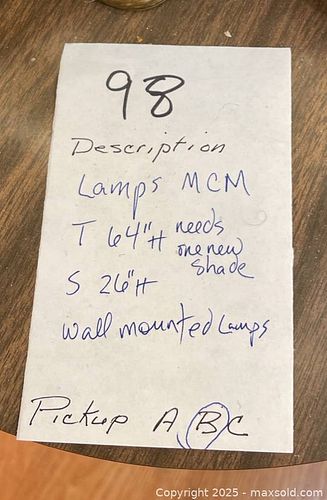 98
Description
Lamps MCM
T 64"H needs
one new
shade
S 26"H
wall mounted Lamps
Pickup A B C
Copyright © 2025 - maxsold.com